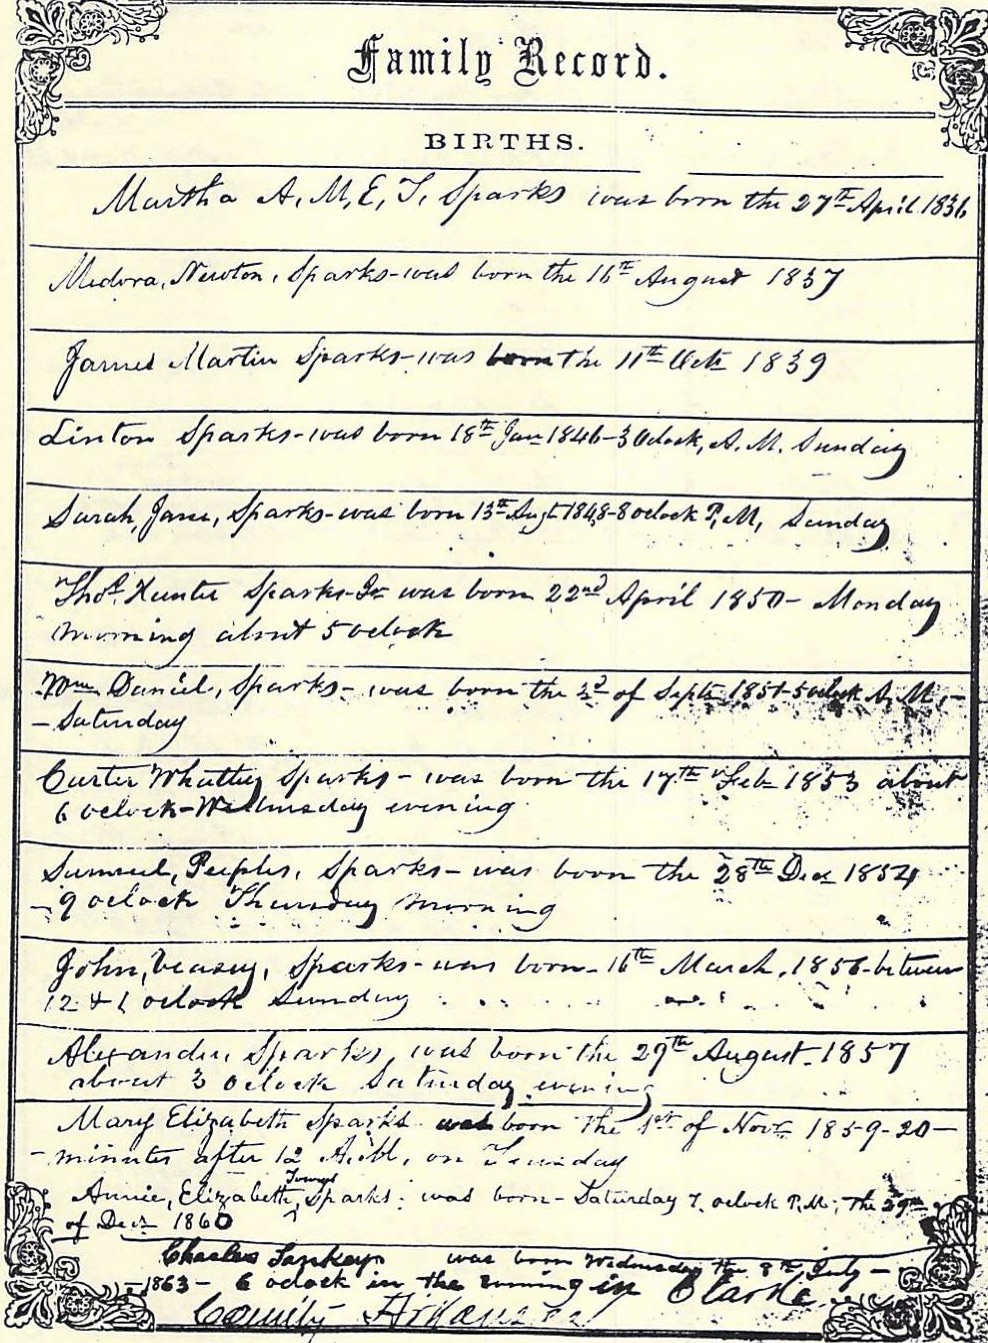 Family Record.
BIRTHS.
Martha A, M, E, T, Sparks was born the 27th April 1836
Medora, Newton, Sparks-was born the 16th August 1837
James Martin Sparks-was born the 11th Octr 1839
Linton Sparks-was born 18th Jan 1846-3 Oclock, A. M. Sunday
Sarah, Jane, Sparks-was born 13th Augt 1848-8 oclock P, M, Sunday
Thos. Hunter Sparks-Jr was born 22nd April 1850- Monday
morning about 5 oclock
Wm Daniel, Sparks- was born the of Septr 1851-5 oclock A, M, -
- Saturday
Carter Whatley Sparks - was born the 17th Feb 1853 about
6 oclock-Wednesday evening
Samuel, Peeples, Sparks-was born the 28th Dec 1854
-9 oclock Thursday morning
John, Veasey, Sparks-was born-16th March, 1856-between
12 & 1 oclock Sunday
Alexander Sparks, was born the 29th August-1857
about 3 oclock Saturday evening
Mary Elizabeth Sparks was born the 1st of Novr 1859-20-
- minutes after 12 on Tuesday
Annie, Elizabeth, Sparks. was born- Saturday 7, oclock P, M; the 29th
of Decr 1860
Charles Sankey was born Wednesday the 8th July-
-1863- 6 oclock in the in Clarke
County Arkansas